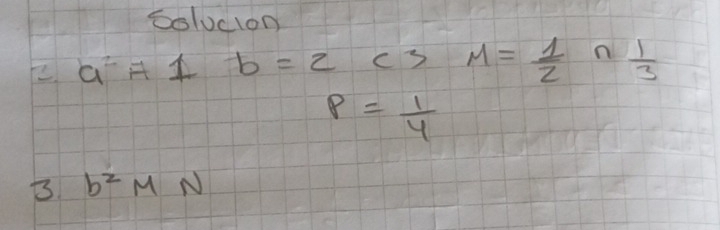 Solucion
2. a = 1 b = 2 c 3 M = 1/2 n 1/3
P = 1/4
3. b² M N